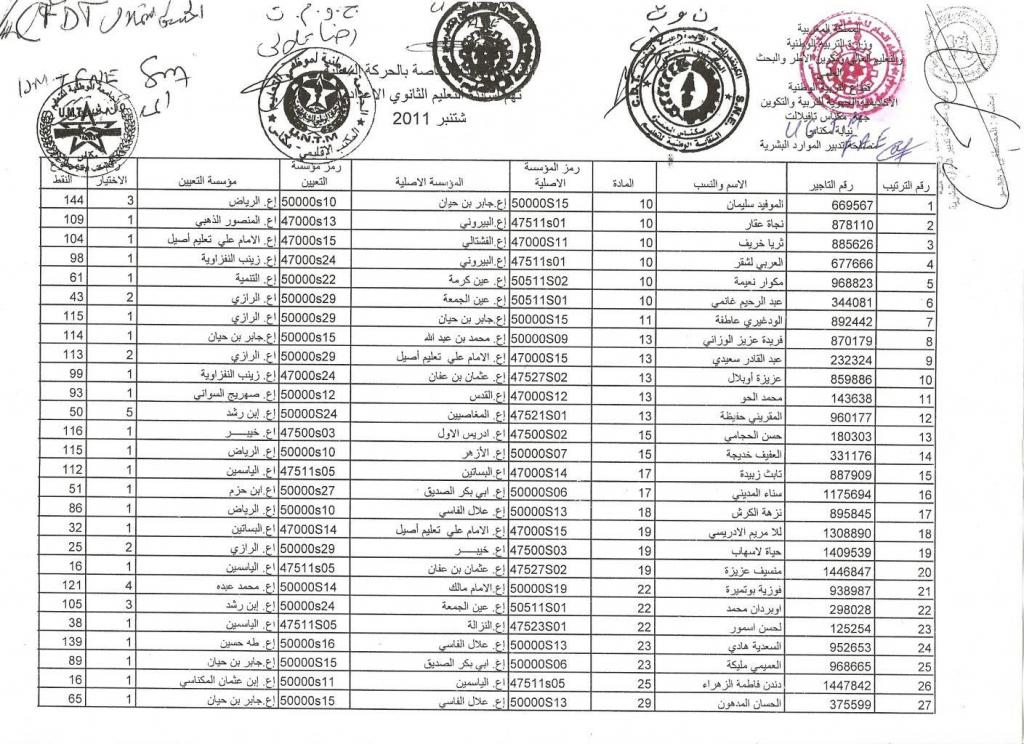 المملكة المغربية
وزارة التربية الوطنية
والتعليم العالي وتكوين الأطر والبحث
قطاع التربية الوطنية
الأكاديمية الجهوية للتربية والتكوين
جهة مكناس تافيلالت
نيابة مكناس
مصلحة تدبير الموارد البشرية
خاصة بالحركة
التعليم الثانوي
شتنبر 2011
رقم الترتيب | رقم التاجير | الاسم والنسب | المادة | رمز المؤسسة الاصلية | المؤسسة الاصلية | رمز مؤسسة التعيين | مؤسسة التعيين | الاختيار | النقط
1 | 669567 | الموفيد سليمان | 10 | 50000S15 | إع.جابر بن حيان | 50000s10 | إع. الرياض | 3 | 144
2 | 878110 | نجاة عقار | 10 | 47511s01 | إع.البيروني | 47000s13 | إع. المنصور الذهبي | 1 | 109
3 | 885626 | ثريا خريف | 10 | 47000S11 | إع.الفشتالي | 47000s15 | إع. الامام علي تعليم أصيل | 1 | 104
4 | 677666 | العربي لشقر | 10 | 47511s01 | إع.البيروني | 47000s24 | إع. زينب النفزاوية | 1 | 98
5 | 968823 | مكوار نعيمة | 10 | 50511S02 | إع. عين كرمة | 50000s22 | إع. التنمية | 1 | 61
6 | 344081 | عبد الرحيم غانمي | 10 | 50511S01 | إع. عين الجمعة | 50000s29 | إع. الرازي | 2 | 43
7 | 892442 | الودغيري عاطفة | 11 | 50000S15 | إع.جابر بن حيان | 50000s29 | إع. الرازي | 1 | 115
8 | 870179 | فريدة عزيز الوزاني | 13 | 50000S09 | إع. محمد بن عبد الله | 50000s15 | إع.جابر بن حيان | 1 | 114
9 | 232324 | عبد القادر سعيدي | 13 | 47000S15 | إع. الامام علي تعليم أصيل | 50000s29 | إع. الرازي | 2 | 113
10 | 859886 | عزيزة أوبلال | 13 | 47527S02 | إع. عثمان بن عفان | 47000s24 | إع. زينب النفزاوية | 1 | 99
11 | 143638 | محمد الحو | 13 | 47000S12 | إع.القدس | 50000s12 | إع. صهريج السواني | 1 | 93
12 | 960177 | المقريني حفيظة | 13 | 47521S01 | إع. المغاصيين | 50000S24 | إع. إبن رشد | 5 | 50
13 | 180303 | حسن الحجامي | 15 | 47500S02 | اع. ادريس الاول | 47500s03 | اع. خيبـــر | 1 | 116
14 | 331176 | العفيف خديجة | 15 | 50000S07 | إع. الأزهر | 50000s10 | إع. الرياض | 1 | 115
15 | 887909 | تابث زبيدة | 17 | 47000S14 | إع.البساتين | 47511s05 | اع. الياسمين | 1 | 112
16 | 1175694 | سناء المديني | 17 | 50000S06 | إع. ابي بكر الصديق | 50000s27 | إع.ابن حزم | 1 | 51
17 | 895845 | نزهة الكرش | 18 | 50000S13 | إع. علال الفاسي | 50000s10 | إع. الرياض | 1 | 86
18 | 1308890 | للا مريم الادريسي | 19 | 47000S15 | إع. الامام علي تعليم أصيل | 47000S14 | إع.البساتين | 1 | 32
19 | 1409539 | حياة لاسهاب | 19 | 47500S03 | اع. خيبـــر | 50000s29 | إع. الرازي | 2 | 25
20 | 1446847 | منسيف عزيزة | 19 | 47527S02 | إع. عثمان بن عفان | 47511s05 | اع. الياسمين | 1 | 16
21 | 938987 | فوزية بوتميرة | 22 | 50000S19 | إع.الامام مالك | 50000S14 | إع. محمد عبده | 4 | 121
22 | 298028 | اوبردان محمد | 22 | 50511S01 | إع. عين الجمعة | 50000s24 | إع. إبن رشد | 3 | 105
23 | 125254 | لحسن اسمور | 22 | 47523S01 | إع.النزالة | 47511S05 | اع. الياسمين | 1 | 38
24 | 952653 | السعدية هادي | 23 | 50000S13 | إع. علال الفاسي | 50000s16 | إع. طه حسين | 1 | 139
25 | 968665 | العميمي مليكة | 23 | 50000S06 | إع. ابي بكر الصديق | 50000S15 | إع.جابر بن حيان | 1 | 89
26 | 1447842 | دندن فاطمة الزهراء | 25 | 47511s05 | اع. الياسمين | 50000s11 | إع. إبن عثمان المكناسي | 1 | 16
27 | 375599 | الحسان المدهون | 29 | 50000S13 | إع. علال الفاسي | 50000s15 | إع.جابر بن حيان | 1 | 65